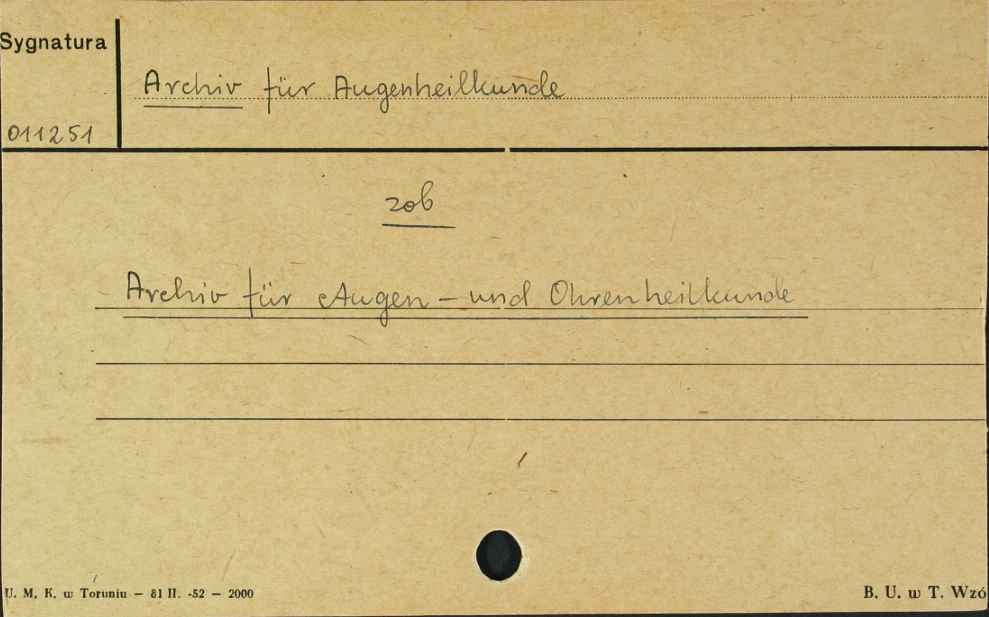 Sygnatura
Archiv für Augenheilkunde
011251
zob
Archiv für Augen - und Ohrenheilkunde
U. M. K. w Toruniu — 81 II. -52 — 2000
B. U. w T. Wzó